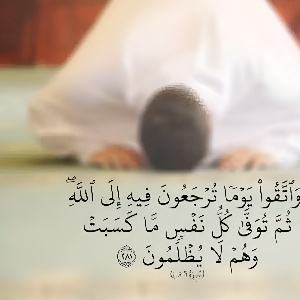 وَٱتَّقُوا۟ يَوْمًا تُرْجَعُونَ فِيهِ إِلَى ٱللَّهِ ۖ
ثُمَّ تُوَفَّىٰ كُلُّ نَفْسٍ مَّا كَسَبَتْ
وَهُمْ لَا يُظْلَمُونَ ﴿٢٨١﴾